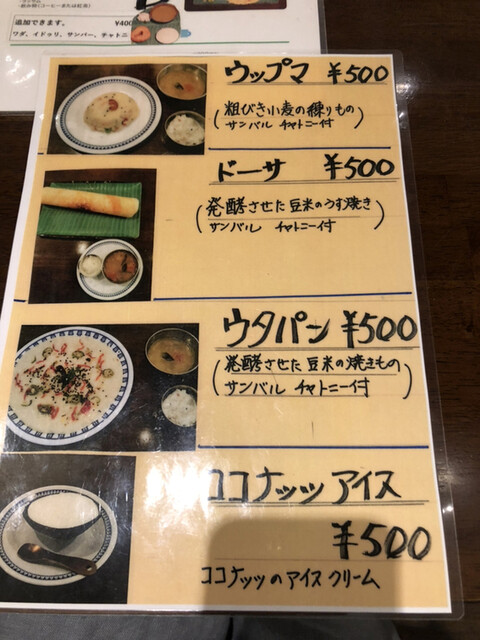 飲み物（コーヒーまたは紅茶）
追加できます。 ¥400
ワダ、イドゥリ、サンバー、チャトニ
ウップマ ¥500
(粗びき小麦の練りもの
サンバル チャトニー付)
ドーサ ¥500
(発酵させた豆米のうす焼き
サンバル チャトニー付)
ウタパン ¥500
(発酵させた豆米の焼きもの
サンバル チャトニー付)
ココナッツ アイス
¥500
ココナッツのアイスクリーム